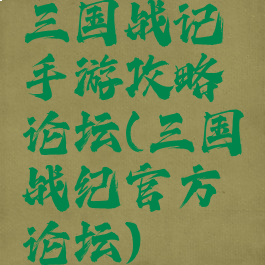 三国战记
手游攻略
论坛(三国
战纪官方
论坛)